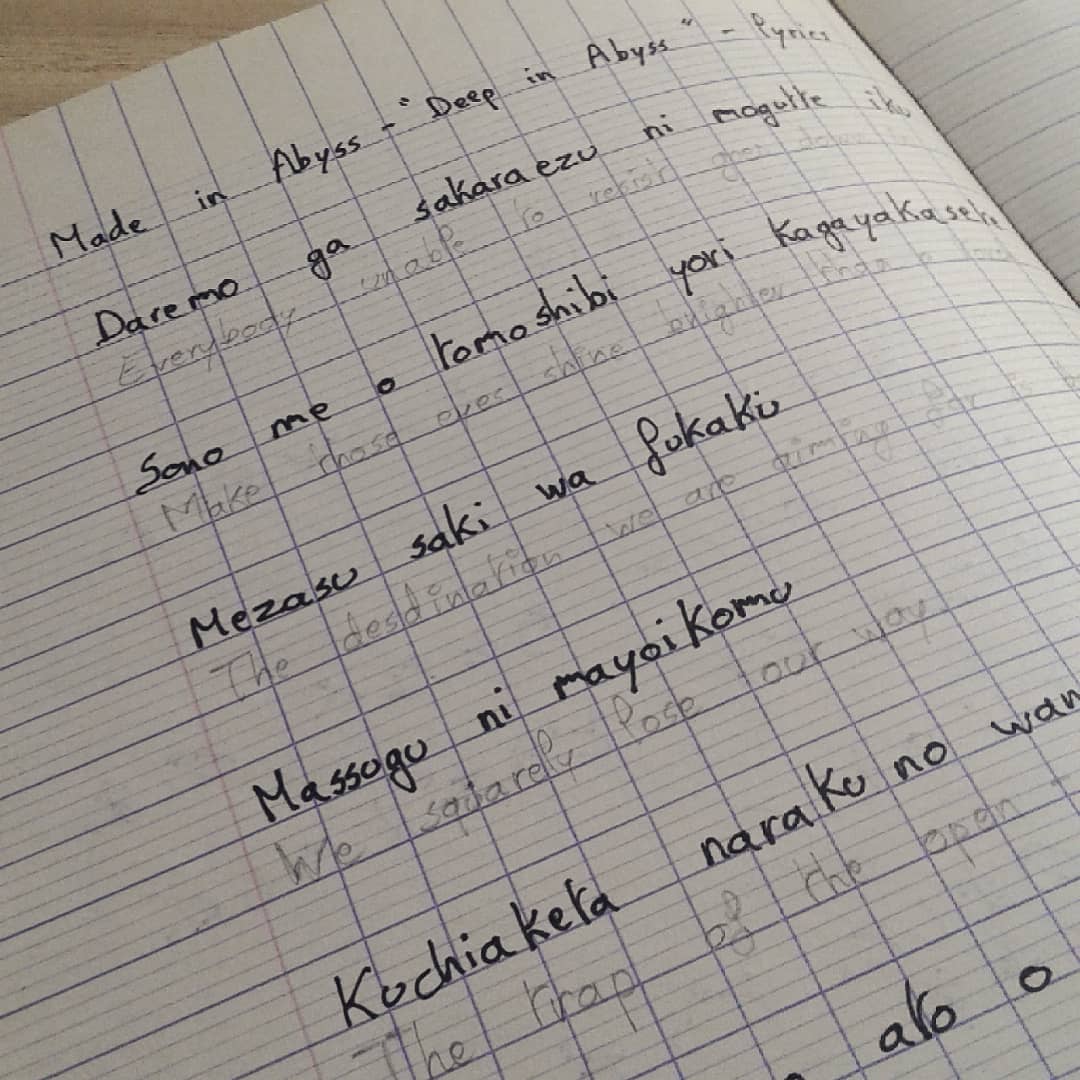 Made in Abyss - "Deep in Abyss" - Lyrics
Daremo ga sakaraezu ni mogutte iku
Everybody unable to resist goes down
Sono me o tomoshibi yori kagayakasete
Make those eyes shine brighter than a
Mezasu saki wa fukaku
The desdination we are aiming for is
Massugu ni mayoikomu
We squarely lose our way
Kuchiaketa naraku no wan
The trap of the open
ato o